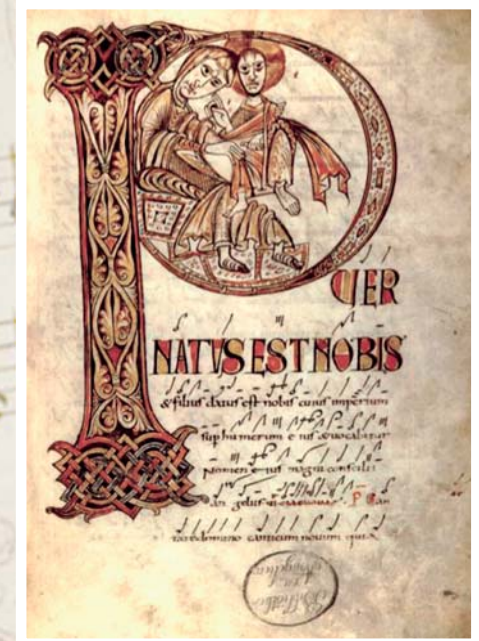 PUER
NATVS EST NOBIS
& filius datus est nobis cuius imperium
sup humerum e ius & uocabitur
nomen e ius magni consilii
an gelus P Can
tate domino canticum nouum quia